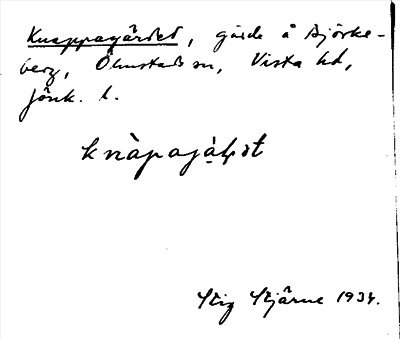 Knappagärdet, gärde å Björke-
berg, Ölmstads sn, Vista hd,
Jönk. l.
knàpajặḷət
Stig Stjärne 1934.